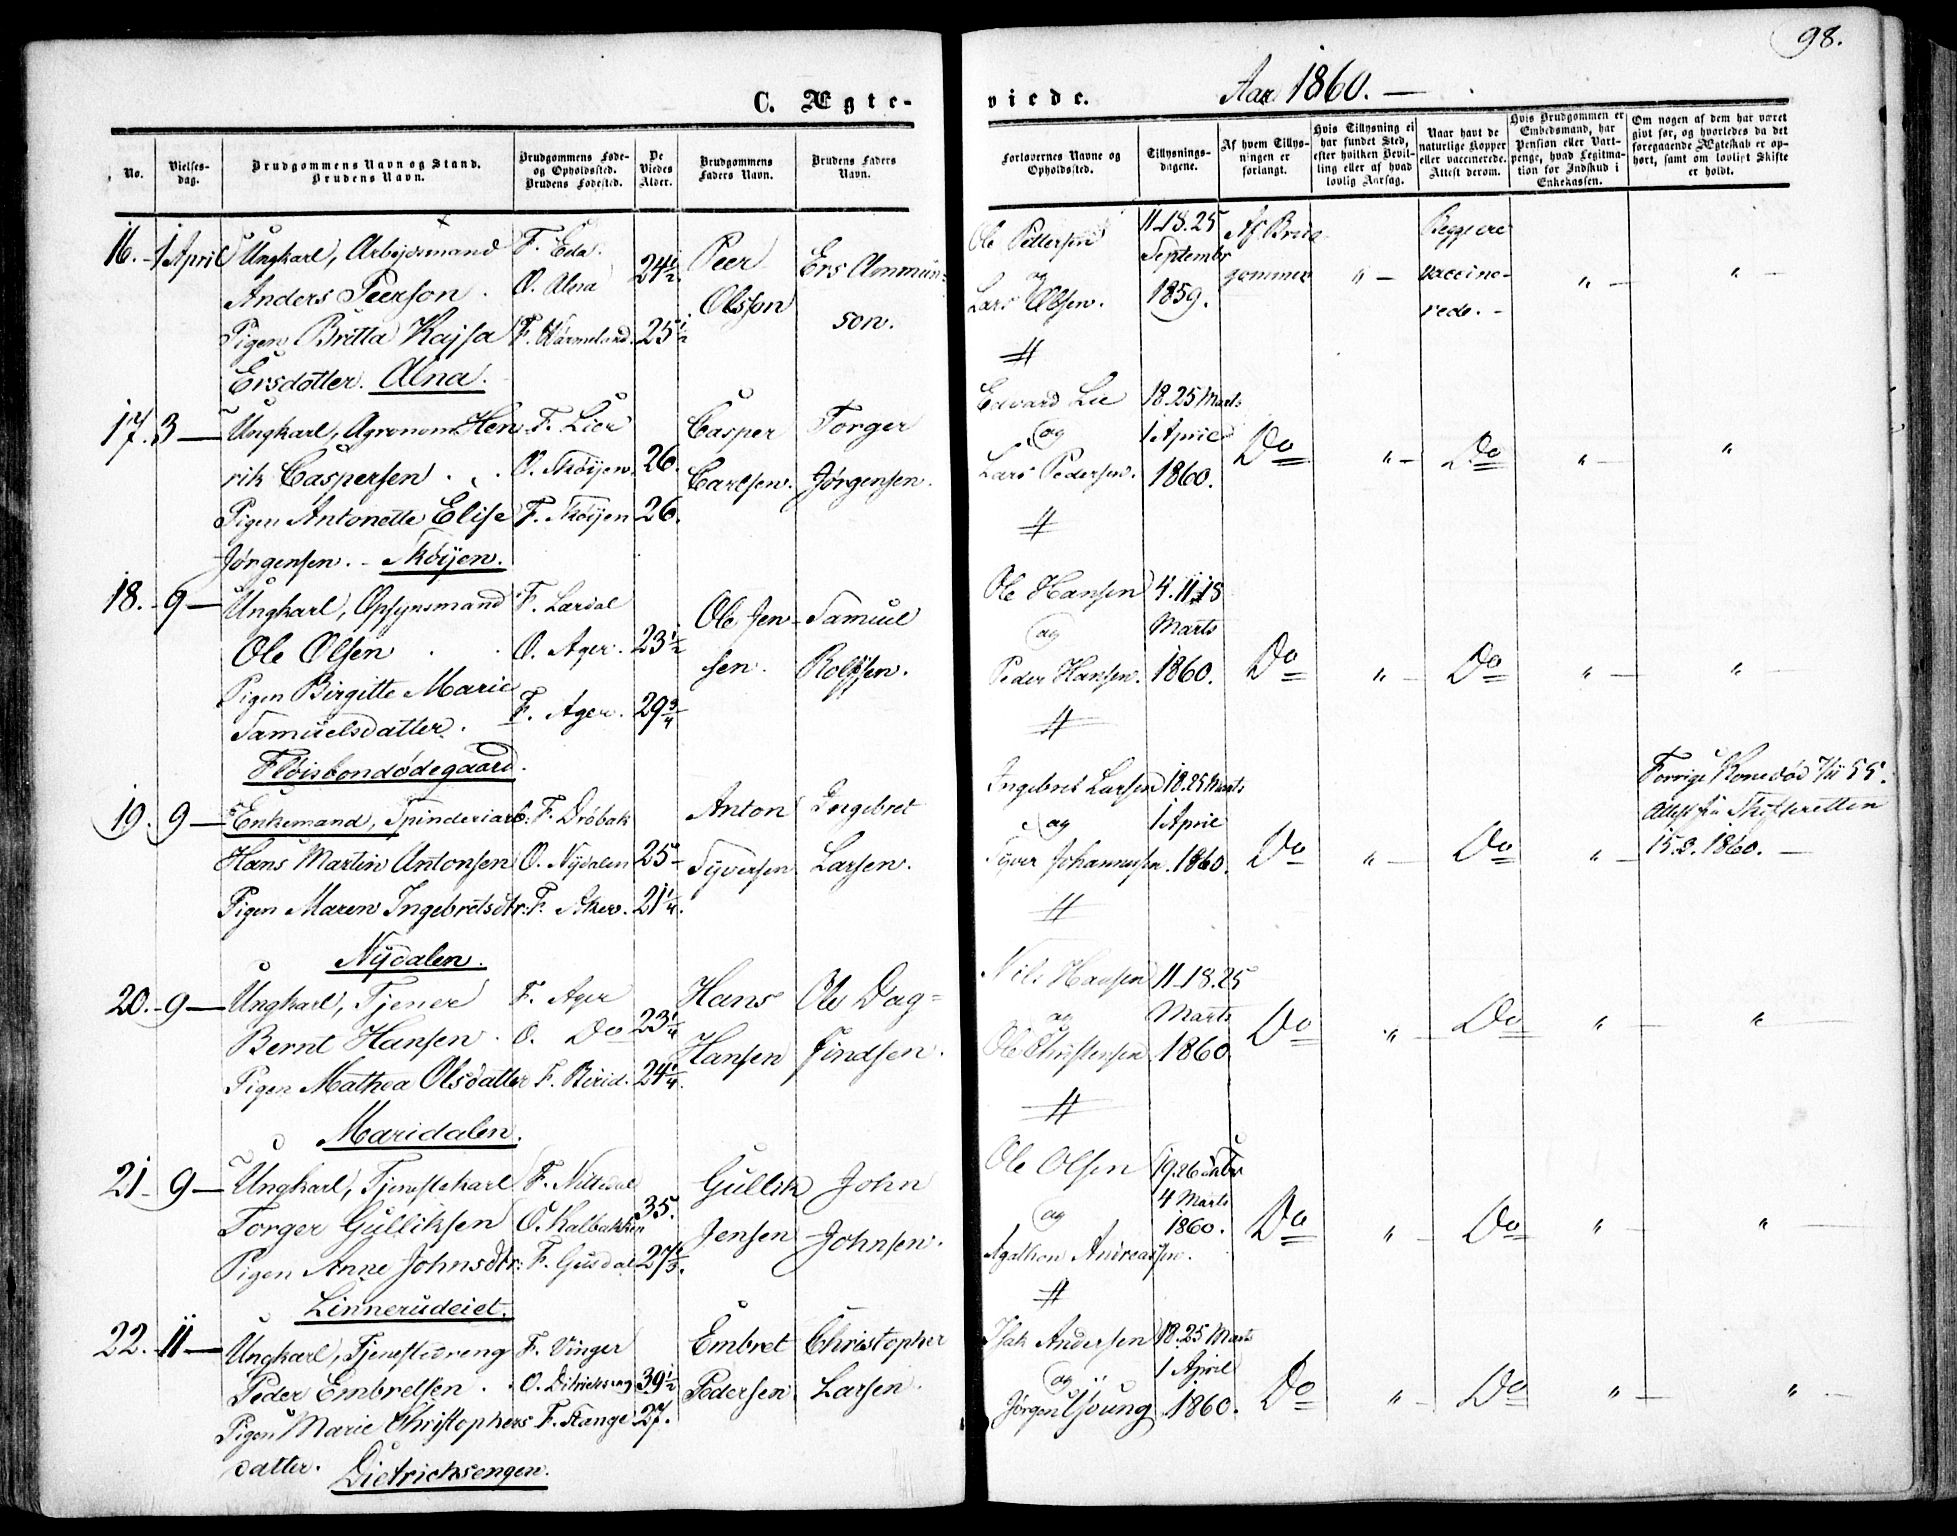 98.
C. Ægte-
viede.
Aar 1860. —
No.
Vielses-
dag.
Brudgommens Navn og Stand.
Brudens Navn.
Brudgommens Føde-
og Opholdssted.
Brudens Fødested.
De
Viedes
Alder.
Brudgommens
Faders Navn.
Brudens Faders
Navn.
Forlovernes Navne og
Opholdssted.
Tillysnings-
dagene.
Af hvem Tillys-
ningen er
forlangt.
Hvis Tillysning ei
har fundet Sted,
efter hvilken Bevil-
ling eller af hvad
lovlig Aarsag.
Naar havt de
naturlige Kopper
eller vaccinerede.
Attest derom.
Hvis Brudgommen er
Embedsmand, har
Pension eller Vart-
penge, hvad Legitima-
tion for Indskud i
Enkekassen.
Om nogen af dem har været
gift før, og hvorledes da det
foregaaende Ægteskab er op-
hørt, samt om lovligt Skifte
er holdt.
16. 1 April Ungkarl, Arbejdsmand
Anders Peerson
Pigen Britta Kajsa
Ersdotter. Alna.
F. Eda.
O. Alna
F. Wärmeland.
24½
25½
Peer
Olsson
Ers Ammun=
son.
Ole Pettersen
og
Lars Olsen.
11. 18. 25
Septembr
1859.
Af Brud-
gommen
" —
Begge ere
vaccine-
rede. -
" —
" —
17. 3 — Ungkarl, Agronom Hen
rik Caspersen
Pigen Antonette Elise
Jørgensen. - Skøijen.
F. Lier
O. Skøijen.
F. Skøijen
26.
26.
Casper
Carlsen.
Torger
Jørgensen.
Edvard Lie
og
Lars Pedersen.
18. 25 Marts
1 April
1860.
Do
" —
Do
" —
"
18. - 9 — Ungkarl, Opsynsmand
Ole Olsen
Pigen Birgitte Marie
Samuelsdatter.
Fløisbondødegaard.
F. Lærdal
O. Ager.
F. Ager.
23½
29¾
Ole Jen-
sen.
Samuel
Rolfsen.
Ole Hansen
og
Peder Hansen.
4. 11. 18
Marts
1860.
Do
" —
Do
" —
"
19. 9 — Enkemand, Spinderiarb:
Hans Martin Antonsen
Pigen Maren Ingebretsdtr:
Nydalen.
F. Drøbak
O. Nydalen
F. Aker.
25
21¼.
Anton
Syversen
Ingebret
Larsen.
Ingebret Larsen
og
Syver Johannesen.
18. 25 Marts
1 April
1860.
Do
" —
Do
" —
Forrige Kone død 7/11 55.
Attest fra Skifteretten
15. 3. 1860. —
20. - 9 — Ungkarl, Tjener
Bernt Hansen
Pigen Mathea Olsdatter
Maridalen.
F. Ager
O. Do
F. Birid.
23¼
24¼.
Hans
Hansen
Ole Dag=
findsen.
Nils Hansen
og
Ole Christensen
11. 18. 25
Marts
1860.
Do
" —
Do
" —
" —
21 - 9 — Ungkarl, Tjenestekarl
Torger Gulliksen
Pigen Anne Johnsdtr:
Linnerudeiet.
F. Nittedal
O. Kalbakken
F. Gusdal
35.
Gullik
Jensen
John
Johnsen.
Ole Olsen
og
Agathon Andreassen.
19. 26
4 Marts
1860.
Do
" —
Do
" —
" —
22. - 11 — Ungkarl, Tjenestedreng
Peder Embretsen
Pigen Marie Christophers
datter. Dietrichsengen.
F. Vinger
F. Stange
39½
27.
Embret
Pedersen
Christopher
Larsen.
Isak Andersen
og
Jørgen
18. 25 Marts
1 April
1860.
Do
" —
Do
" —
" —